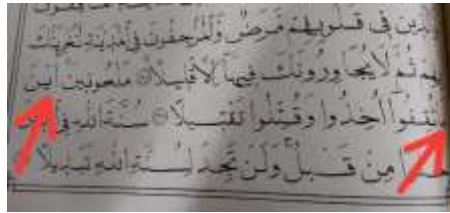 في قُلُوبِهِمْ مَرَضٌ وَالْمُرْجِفُونَ فِي الْمَدِينَةِ لَنُغْرِيَنَّكَ
بِهِمْ ثُمَّ لَا يُجَاوِرُونَكَ فِيهَا إِلَّا قَلِيلًا مَلْعُونِينَ أَيْنَ
ثُقِفُوا أُخِذُوا وَقُتِّلُوا تَقْتِيلًا سُنَّةَ اللهِ فِي
مِنْ قَبْلُ وَلَنْ تَجِدَ لِسُنَّةِ اللهِ تَبْدِيلًا